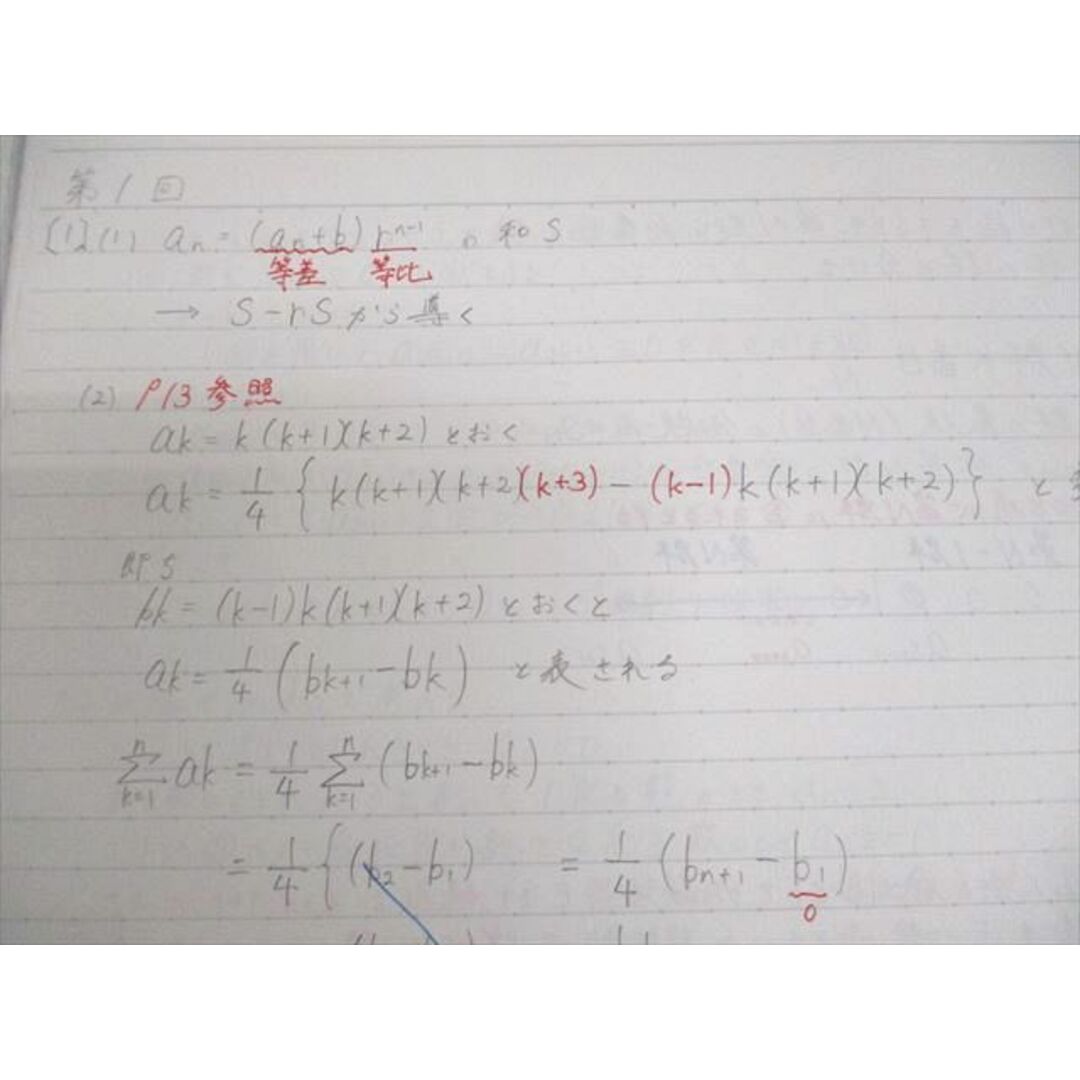 第1回
[1](1) an = (an+b) r^{n-1} の和S
等差 等比
→ S-rSから導く
(2) P13参照
ak = k(k+1)(k+2) とおく
ak = 1/4 { k(k+1)(k+2)(k+3) - (k-1)k(k+1)(k+2) } と
bk = (k-1)k(k+1)(k+2) とおくと
ak = 1/4 (bk+1 - bk) と表される
n∑k=1 ak = 1/4 n∑k=1 (bk+1 - bk)
= 1/4 { (b2 - b1) = 1/4 (bn+1 - b1)
0